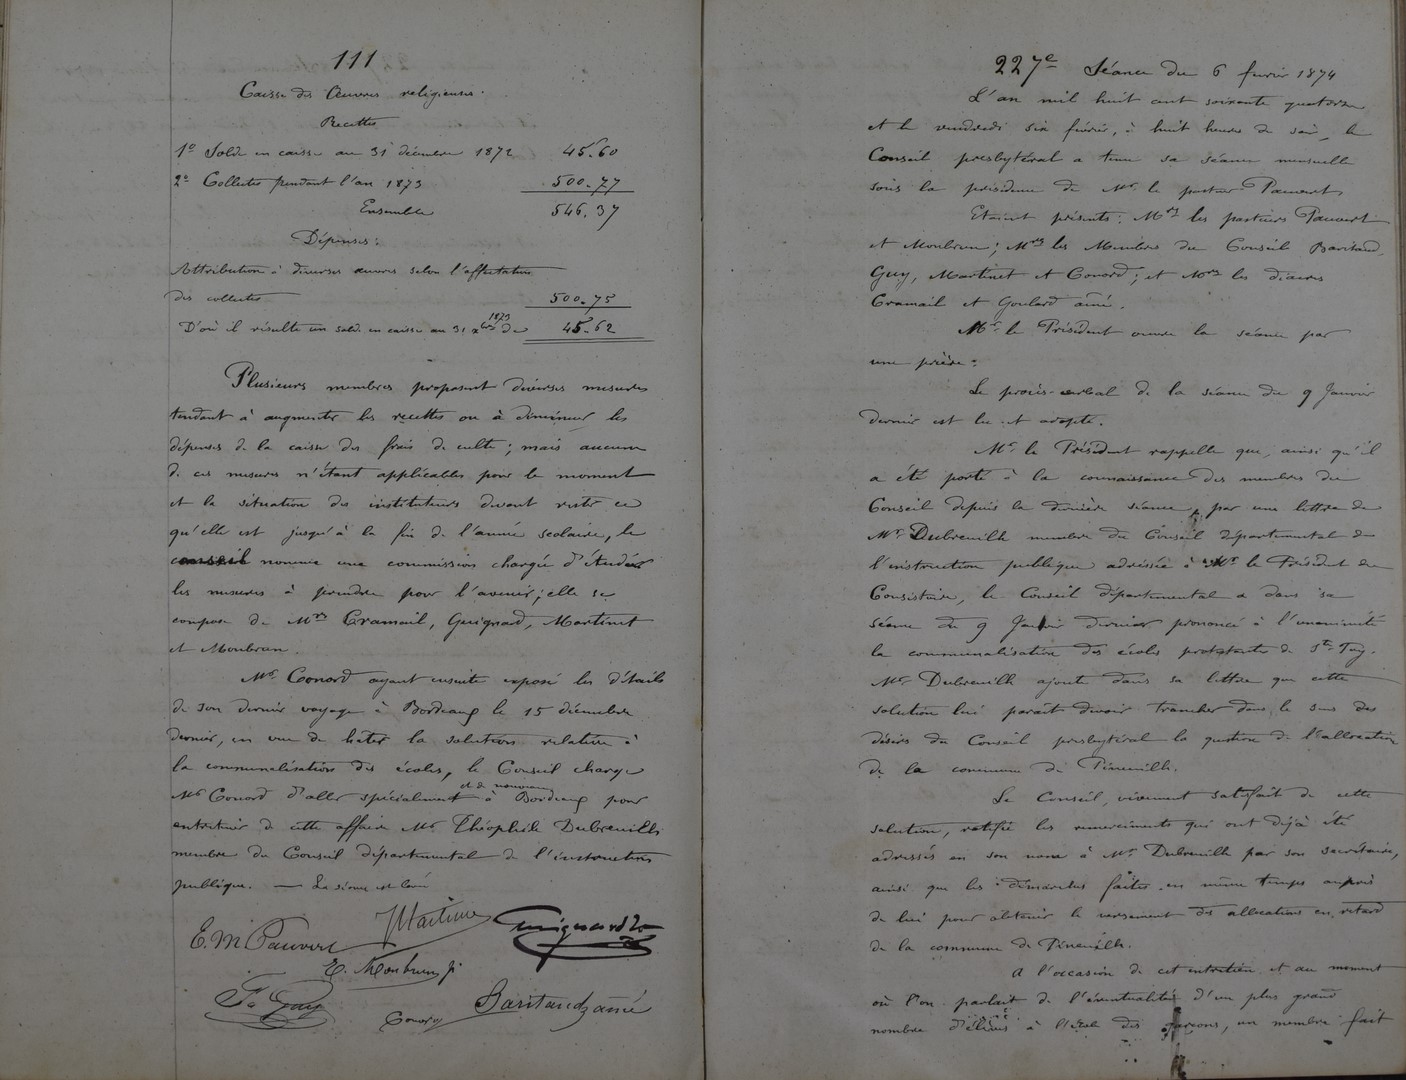 111
Caisse des Œuvres religieuses.
Recettes
1º Solde en caisse au 31 décembre 1872 45.60
2º Collectes pendant l'an 1873 500.77
Ensemble 546.37
Dépenses:
Attribution à diverses œuvres selon l'affectation
des collectes 500.75
D'où il résulte un solde en caisse au 31 Xbre 1873 de 45.62
Plusieurs membres proposent diverses mesures
tendant à augmenter les recettes ou à diminuer les
dépenses de la caisse des frais de culte; mais aucune
de ces mesures n'étant applicables pour le moment
et la situation des instituteurs devant rester ce
qu'elle est jusqu'à la fin de l'année scolaire, le
conseil nomme une commission chargée d'étudier
les mesures à prendre pour l'avenir; elle se
compose de Mrs Cramail, Guignard, Martinet
et Monbrun.
Mr Conord ayant ensuite exposé les détails
de son dernier voyage à Bordeaux le 15 décembre
dernier, en vue de hâter la solution relative à
la communalisation des écoles, le Conseil charge
Mr Conord d'aller spécialement et de nouveau à Bordeaux pour
entretenir de cette affaire Mr Théophile Dubreuilh
membre du Conseil départemental de l'instruction
publique. — La séance est levée
E. M. Pauvert Martinet Guignard
E. Monbrun p.
Guy Conord Baritaud aîné
227e Séance du 6 février 1874
L'an mil huit cent soixante quatorze
et le vendredi six février, à huit heures du soir, le
Conseil presbytéral a tenu sa séance mensuelle
sous la présidence de Mr le pasteur Pauvert.
Etaient présents: Mrs les pasteurs Pauvert
et Monbrun; Mrs les Membres du Conseil Baritaud,
Guy, Martinet et Conord; et Mrs les diacres
Cramail et Goulard aîné.
Mr le Président ouvre la séance par
une prière.
Le procès-verbal de la séance du 9 Janvier
dernier est lu et adopté.
Mr le Président rappelle que, ainsi qu'il
a été porté à la connaissance des membres du
Conseil depuis la dernière séance, par une lettre de
Mr Dubreuilh membre du Conseil départemental de
l'instruction publique adressée à Mr le Président du
Consistoire, le Conseil départemental a dans sa
séance du 9 Janvier dernier prononcé à l'unanimité
la communalisation des écoles protestantes de Ste Foy.
Mr Dubreuilh ajoute dans sa lettre que cette
solution lui paraît devoir trancher dans le sens des
désirs du Conseil presbytéral la question de l'allocation
de la commune de Pineuilh.
Le Conseil, vivement satisfait de cette
solution, ratifie les remerciments qui ont déjà été
adressés en son nom à Mr Dubreuilh par son secrétaire,
ainsi que les démarches faites en même temps auprès
de lui pour obtenir le versement des allocations en retard
de la commune de Pineuilh.
A l'occasion de cet entretien et au moment
où l'on parlait de l'éventualité d'un plus grand
nombre d'élèves à l'école des garçons, un membre fait